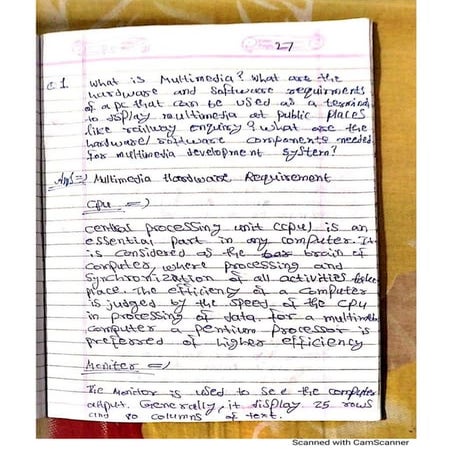 27
Q1. What is Multimedia? What are the
hardware and Software requirments
of a pc that can be used as a terminal
to display multimedia at public places
like railway enquiry? What are the
hardware/software components needed
for multimedia development system?
Ans=) Multimedia Hardware Requirement
CPU =)
central processing unit (cpu) is an
essential part in any computer. It
is considered as the brain of
computer, where processing and
synchronization of all activities takes
place. The efficiency of a computer
is judged by the speed of the CPU
in processing of data. for a multimedia
computer a pentium processor is
preferred of higher efficiency
Moniter =)
The Monitor is used to see the computer
output. Generally, it display 25 rows
and 80 columns of text.
Scanned with CamScanner